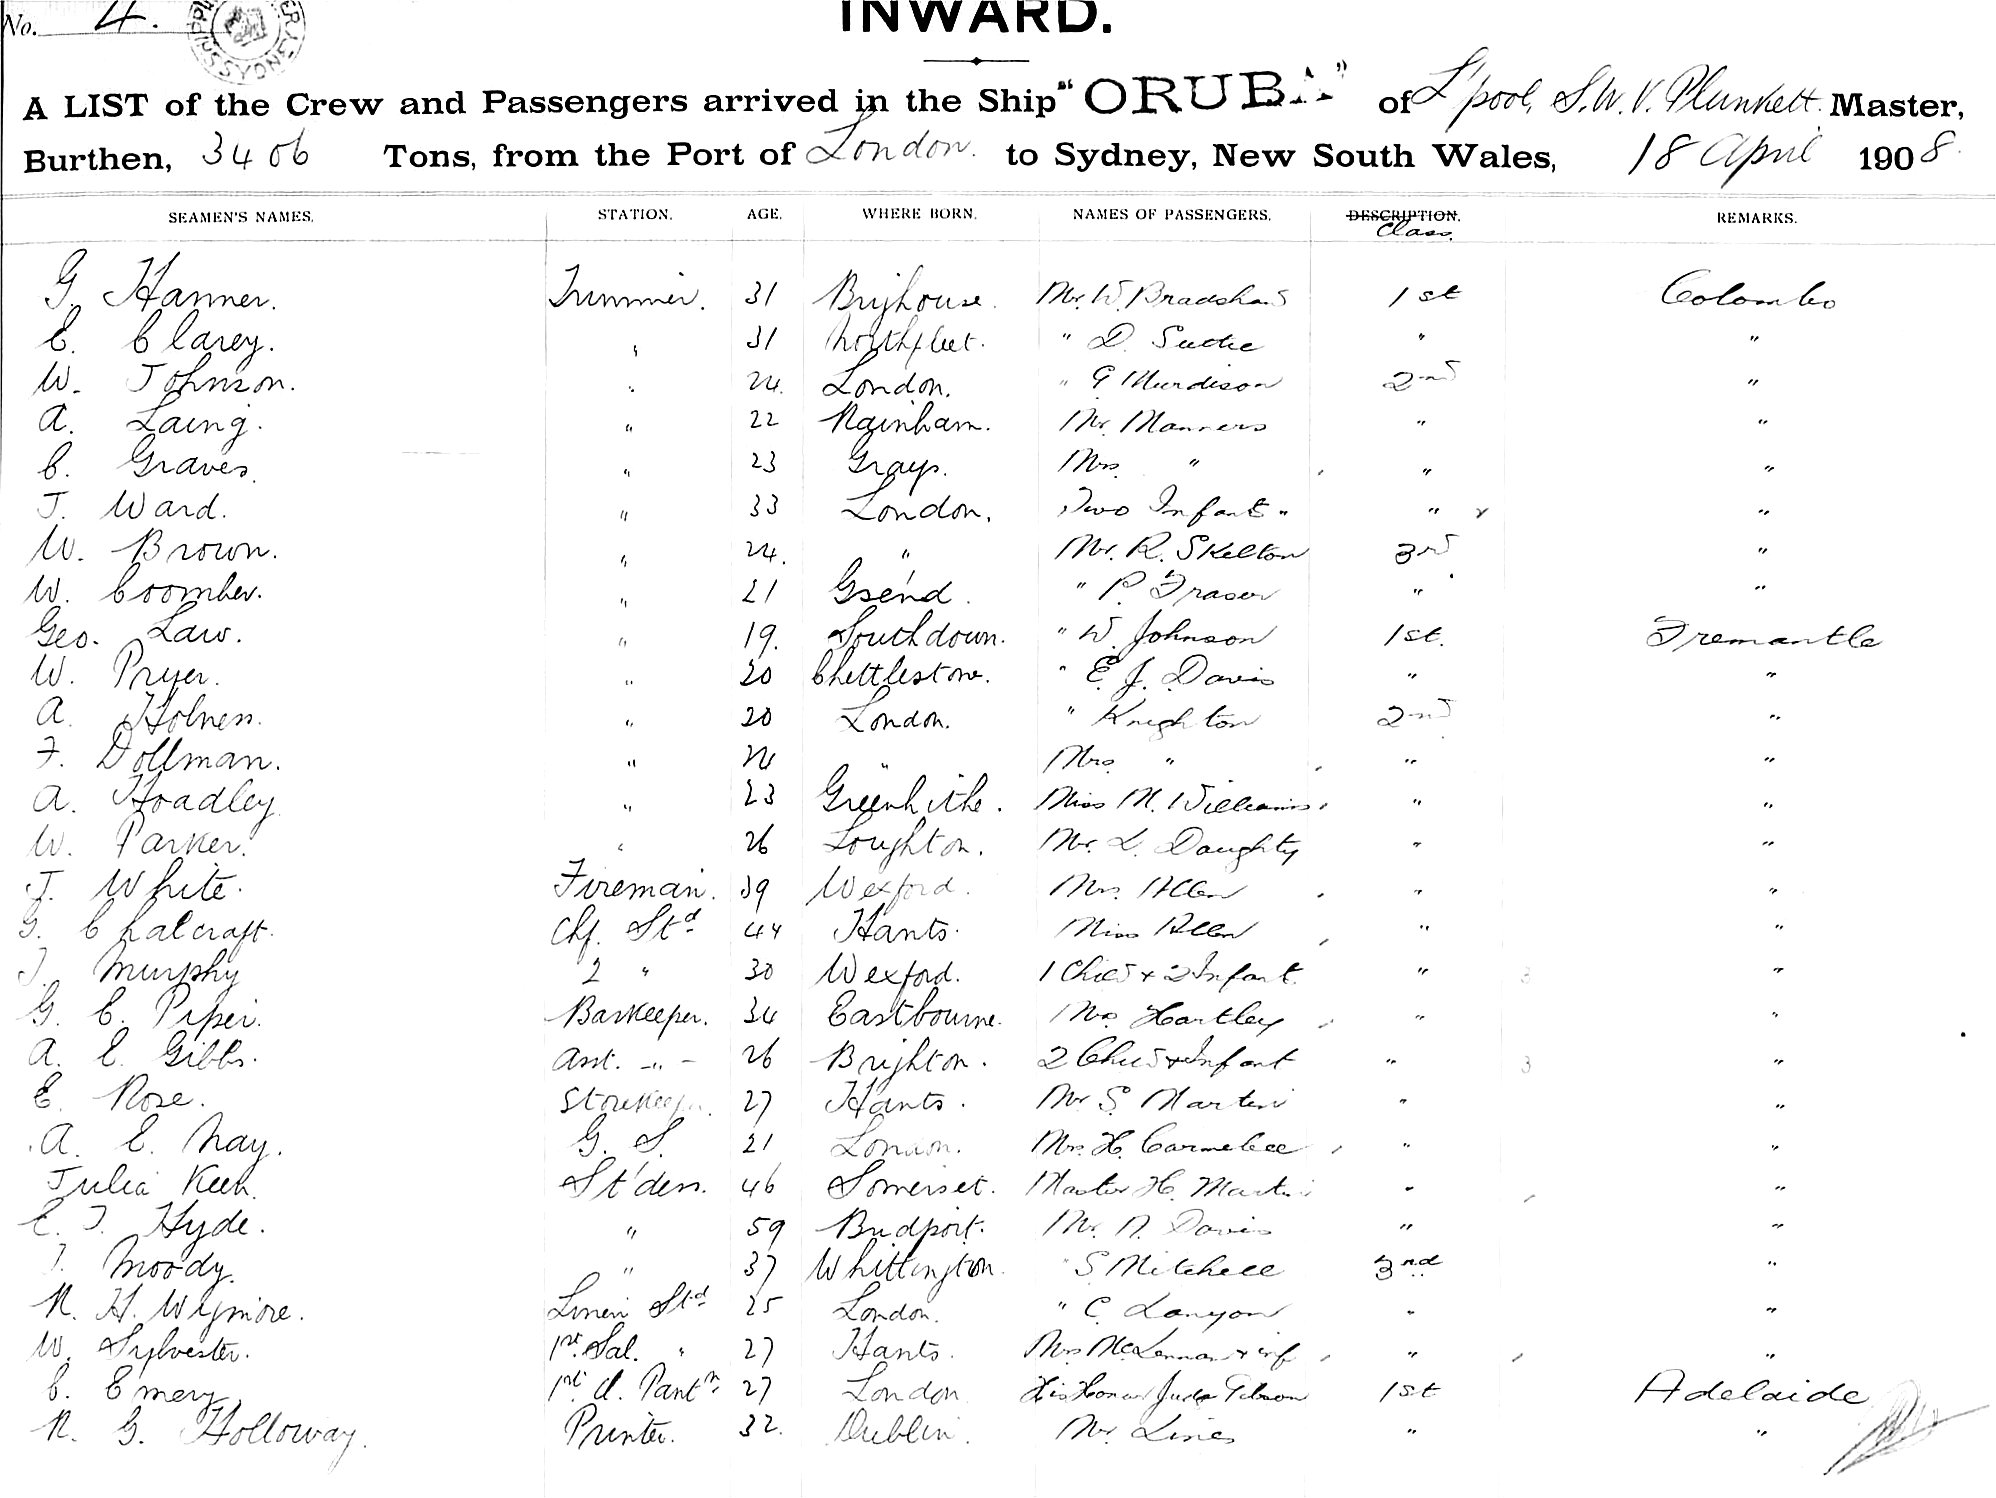 No. 4.
INWARD.
A LIST of the Crew and Passengers arrived in the Ship "ORUBA" of L'pool, S.W.V. Plunkett Master,
Burthen, 3406 Tons, from the Port of London. to Sydney, New South Wales, 18 April 1908.
SEAMEN'S NAMES. STATION. AGE. WHERE BORN. NAMES OF PASSENGERS. DESCRIPTION. REMARKS.
Class.
G. Hanner. Trimmer. 31 Brighouse. Mr. W. Bradshaw 1st Colombo
C. Clarey. " 31 Northfleet. " D. Sudie " "
W. Johnson. " 24. London. " G Murdison 2nd "
A. Laing. " 22 Rainham. Mr. Manners " "
C. Graves. " 23 Grays. Mrs. " " "
J. Ward. " 33 London. Two Infants " " "
W. Brown. " 24. " Mr. R. Skelton 3rd "
W. Coomber. " 21 Gsend. " P. Fraser " "
Geo. Law. " 19. Southdown. " W. Johnson 1st. Fremantle
W. Pryer. " 20 Chettlestone. " E. J. Davis " "
A. Holness. " 20 London. " Knighton 2nd "
F. Dollman. " " Mrs. " " "
A. Hoadley. " 23 Greenhithe. Miss M. Williams " "
W. Parker. " 26 Loughton. Mr. L. Doughty " "
J. White. Fireman. 39 Wexford. Mrs. Allen " "
G. Chalcraft. Chf. Std 44 Hants. Miss Allen " "
J. Murphy 2 " 30 Wexford. 1 Child + 2 Infant. " "
G. C. Piper. Barkeeper. 34 Eastbourne. Mrs Hartley " "
A. E. Gibbs. Asst. -"- 26 Brighton. 2 Child + Infant " "
E. Rose. Storekeeper. 27 Hants. Mr S. Martin " "
A. E. Nay. G. S. 21 London. Mrs. H. " "
Julia Keen. St'dess. 46 Somerset. Master H. Martin " "
E. J. Hyde. " 59 Bridport. Mr. N. Davis " "
J. Moody. " 37 Whittington. " S Mitchell 3rd "
R. H. Wigmore. Linen Std 25 London. " C. Lanyon " "
W. Sylvester. 1st. Sal. " 27 Hants. Mrs McLennan + inf " "
C. Emery. 1st Cl. Pantn 27 London His Honour Judge Gibson 1st Adelaide
R. G. Holloway. Printer. 32. Dublin. Mr. Lines " "